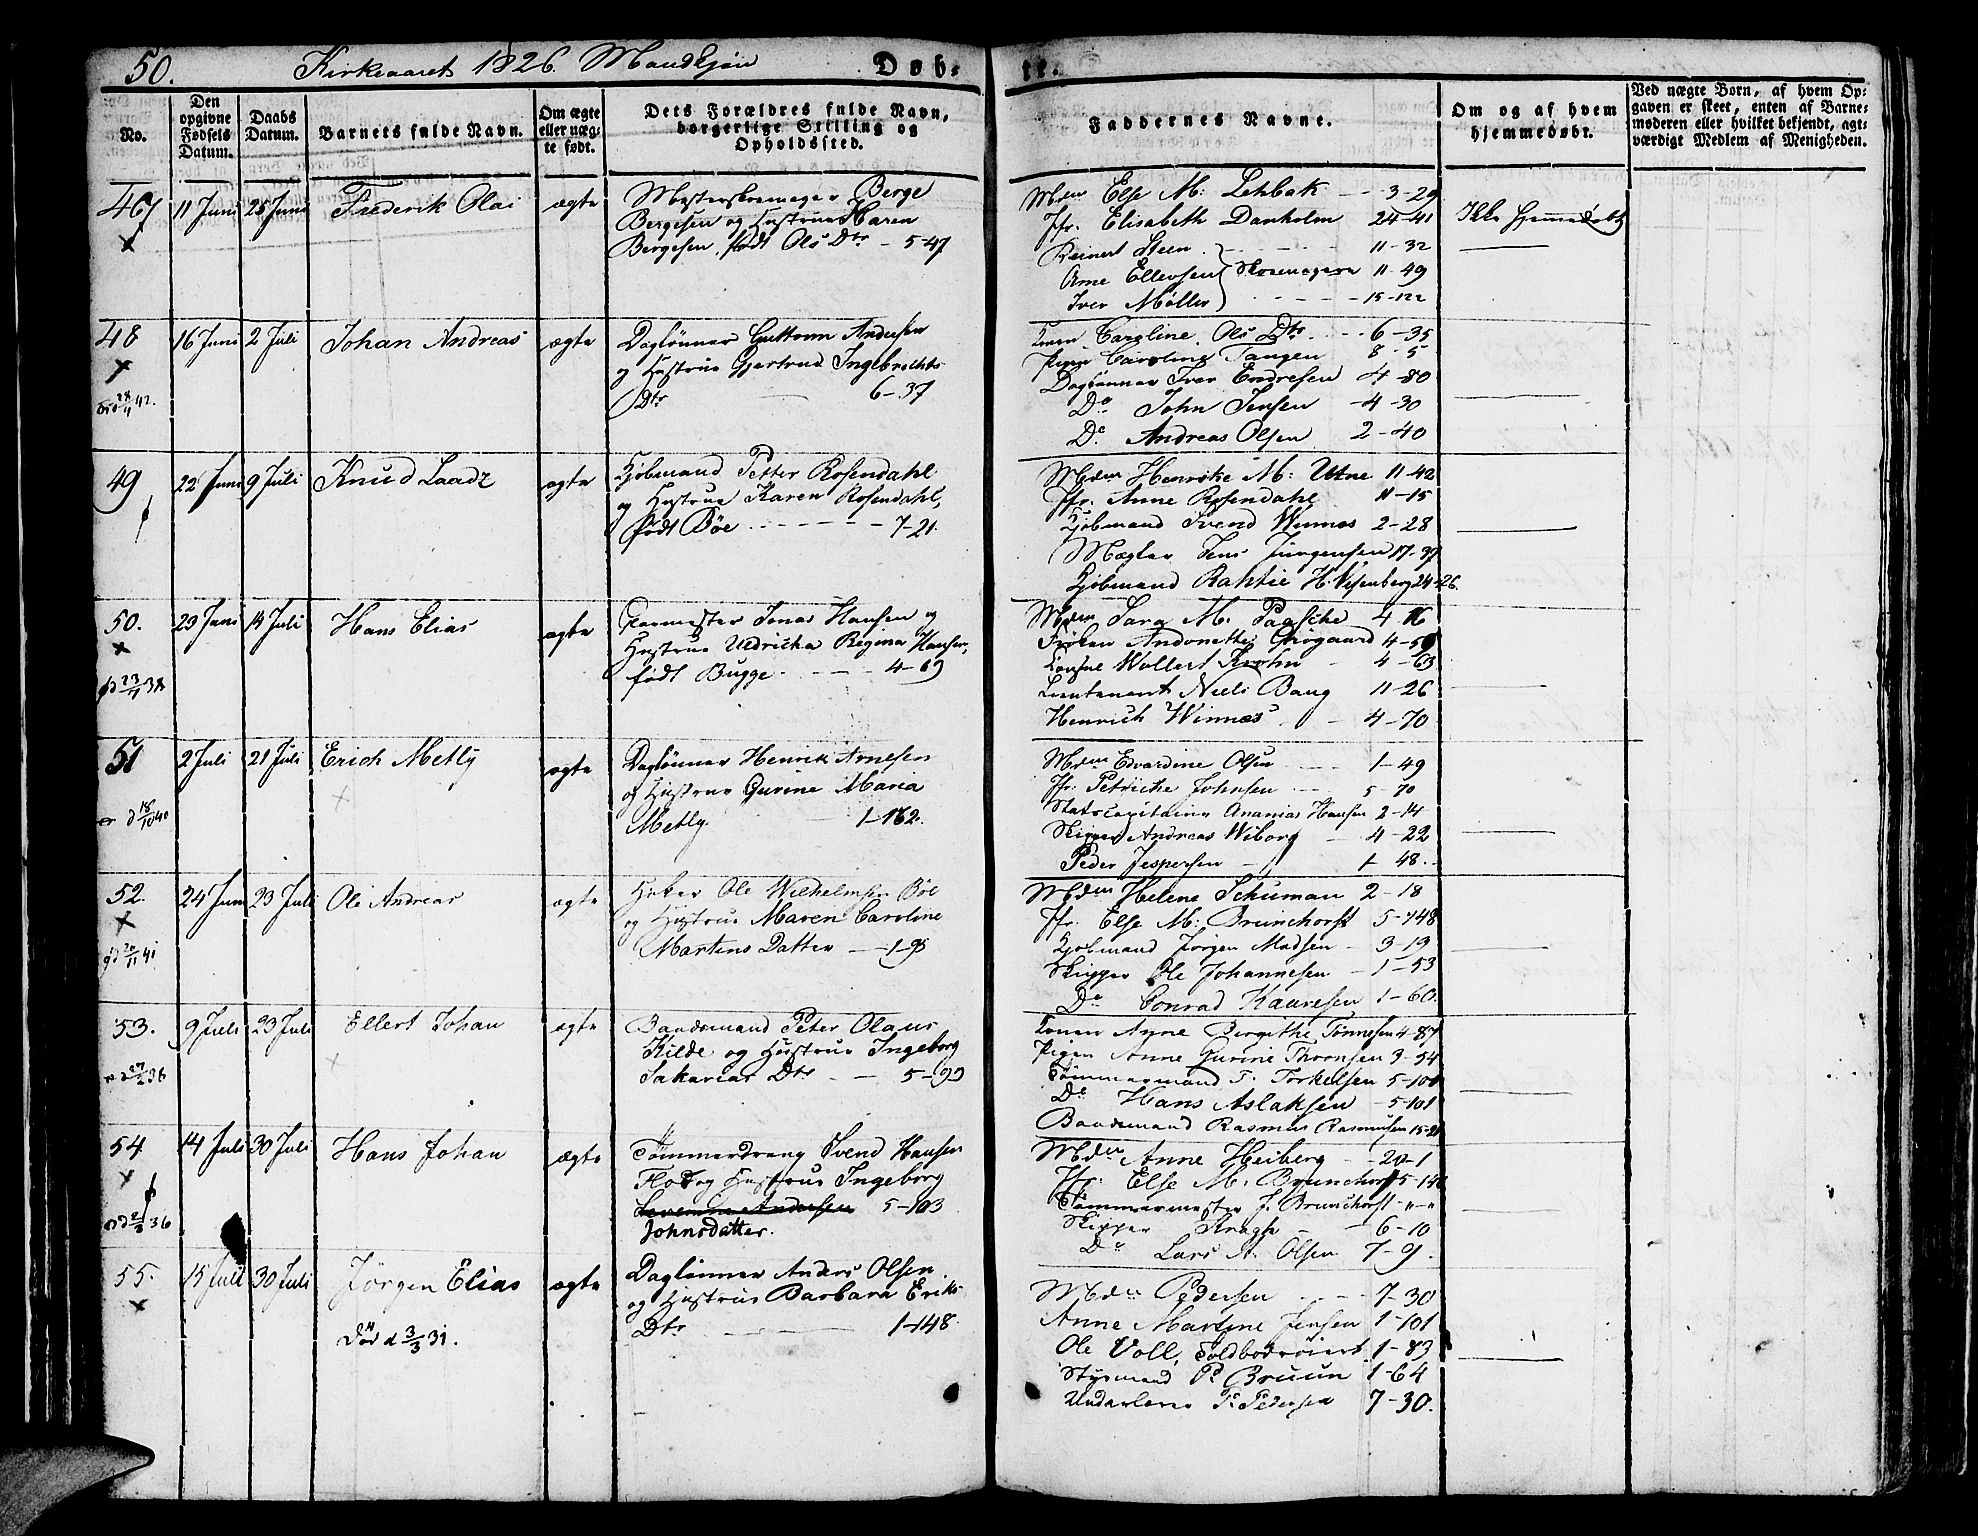 50. Kirkeaaret 1826. Mandkjøn Døb-
te.
No.
Den opgivne Fødsels Datum.
Daabs Datum.
Barnets fulde Navn.
Om ægte eller næg-
te født.
Dets Forældres fulde Navn,
borgerlige Stilling og
Opholdssted.
Faddernes Navne.
Om og af hvem
hjemmedøbt.
Ved nægte Børn, af hvem Op-
gaven er skeet, enten af Barne-
moderen eller hvilket bekjendt, agt-
værdigt Medlem af Menigheden.
47 11 Juni 25 Juni Frederik Olai ægte
Mesterskomager Berge
Bergesen og Hustrue Karen
Bergesen, født Ols Dtr - 5-47
Mdm Else M: Lehbak - 3-29
Jfr. Elisabeth Danholm 24-41
Reinert Steen 11-32
Arne Ellevsen Skomagere 11-49
Iver Møller 15-122
Ikke Hjemmedøbt
48 16 Juni 2 Juli Johan Andreas ægte
Daglønner Guttorm Andersen
og Hustrue Gjertrud Ingebrichts
Dtr 6-37
Konen Caroline Ols Dtr 6-35
Pigen Caroline Tangen 8-5
Daglønner Iver Endresen 4-80
Do John Jensen 4-30
Do Andreas Olsen 2-40
49 22 Juni 9 Juli Knud Laadz ægte
Kjøbmand Petter Rosendahl
og Hustrue Karen Rosendahl,
født Bøe 7-21.
Mdm Henrike M: Utne 11-42
Jfr. Anne Rosendahl 11-15
Kjøbmand Svend Winnæs 2-28
Mægler Jens Jürgensen 17-37
Kjøbmand Rahtie H. Wesenberg 24-26.
50. 29 Juni 14 Juli Hans Elias ægte
Garmester Jonas Hansen og
Hustrue Uldricha Regina Hansen,
født Bugge 4-69
Mdm Sara M. Paasche 4 16
Frøken Andonette Grøgaard 4-59
Consul Wollert Krohn 4-63
Lieutenant Niels Bang 11-26
Henrich Winnæs 4-70
51 2 Juli 21 Juli Erich Metly ægte
Dagløner Henrik Arnesen
og Hustrue Gurine Maria
Metly. 1-162.
Mdm Edvardine Olsen 1-49
Jfr. Petriche Johnsen 5-70
Statscapitaine Ananias Hansen 2-14
Skipper Andreas Wiborg 4-22
Peder Jespersen 1-48.
52. 24 Juni 23 Juli Ole Andreas ægte
Høker Ole Wilhelmsen Bøe
og Hustrue Maren Caroline
Martins Datter 1-95
Mdm Helene Schuman 2-18
Jfr. Else M: Brunchorst 5-148
Kjøbmand Jørgen Madsen 3-19
Skipper Ole Johannesen 1-53
Do Conrad Kaaresen 1-60.
53. 9 Juli 23 Juli Ellert Johan ægte
Baadsmand Peter Olaus
Kilde og Hustrue Ingeborg
Sakarias Dtr 5-99
Konen Anne Birgithe Tønnesen 4-87
Pigen Anne Gurine Thronsen 3-54
Tømmermand T. Torkelsen 5-100
Do Hans Aslaksen 5-101
Baadsmand Rasmus Rasmusen 15-21
54 14 Juli 30 Juli Hans Johan ægte
Tømmerdreng Svend Hansen
Flod og Hustrue Ingeborg
5-103
Johnsdatter.
Mdm Anne Heiberg 20-1
Jfr. Else M. Brunchorst 5-148
Tømmermester J. Brunchorst "-"
Skipper Kragh 6-10
Do Lars A. Olsen 7-9.
55. 15 Juli 30 Juli Jørgen Elias ægte
Død d 3/3 31.
Dagløner Anders Olsen
og Hustrue Barbara Eriks
Dtr 1-148
Mdm Pedersen 7-30
Anne Martine Jensen 1-101
Ole Voll, Toldbodrøiert 1-83
Styrmand P. Bruun 1-64
Underlærer T. Pedersen 7-30.